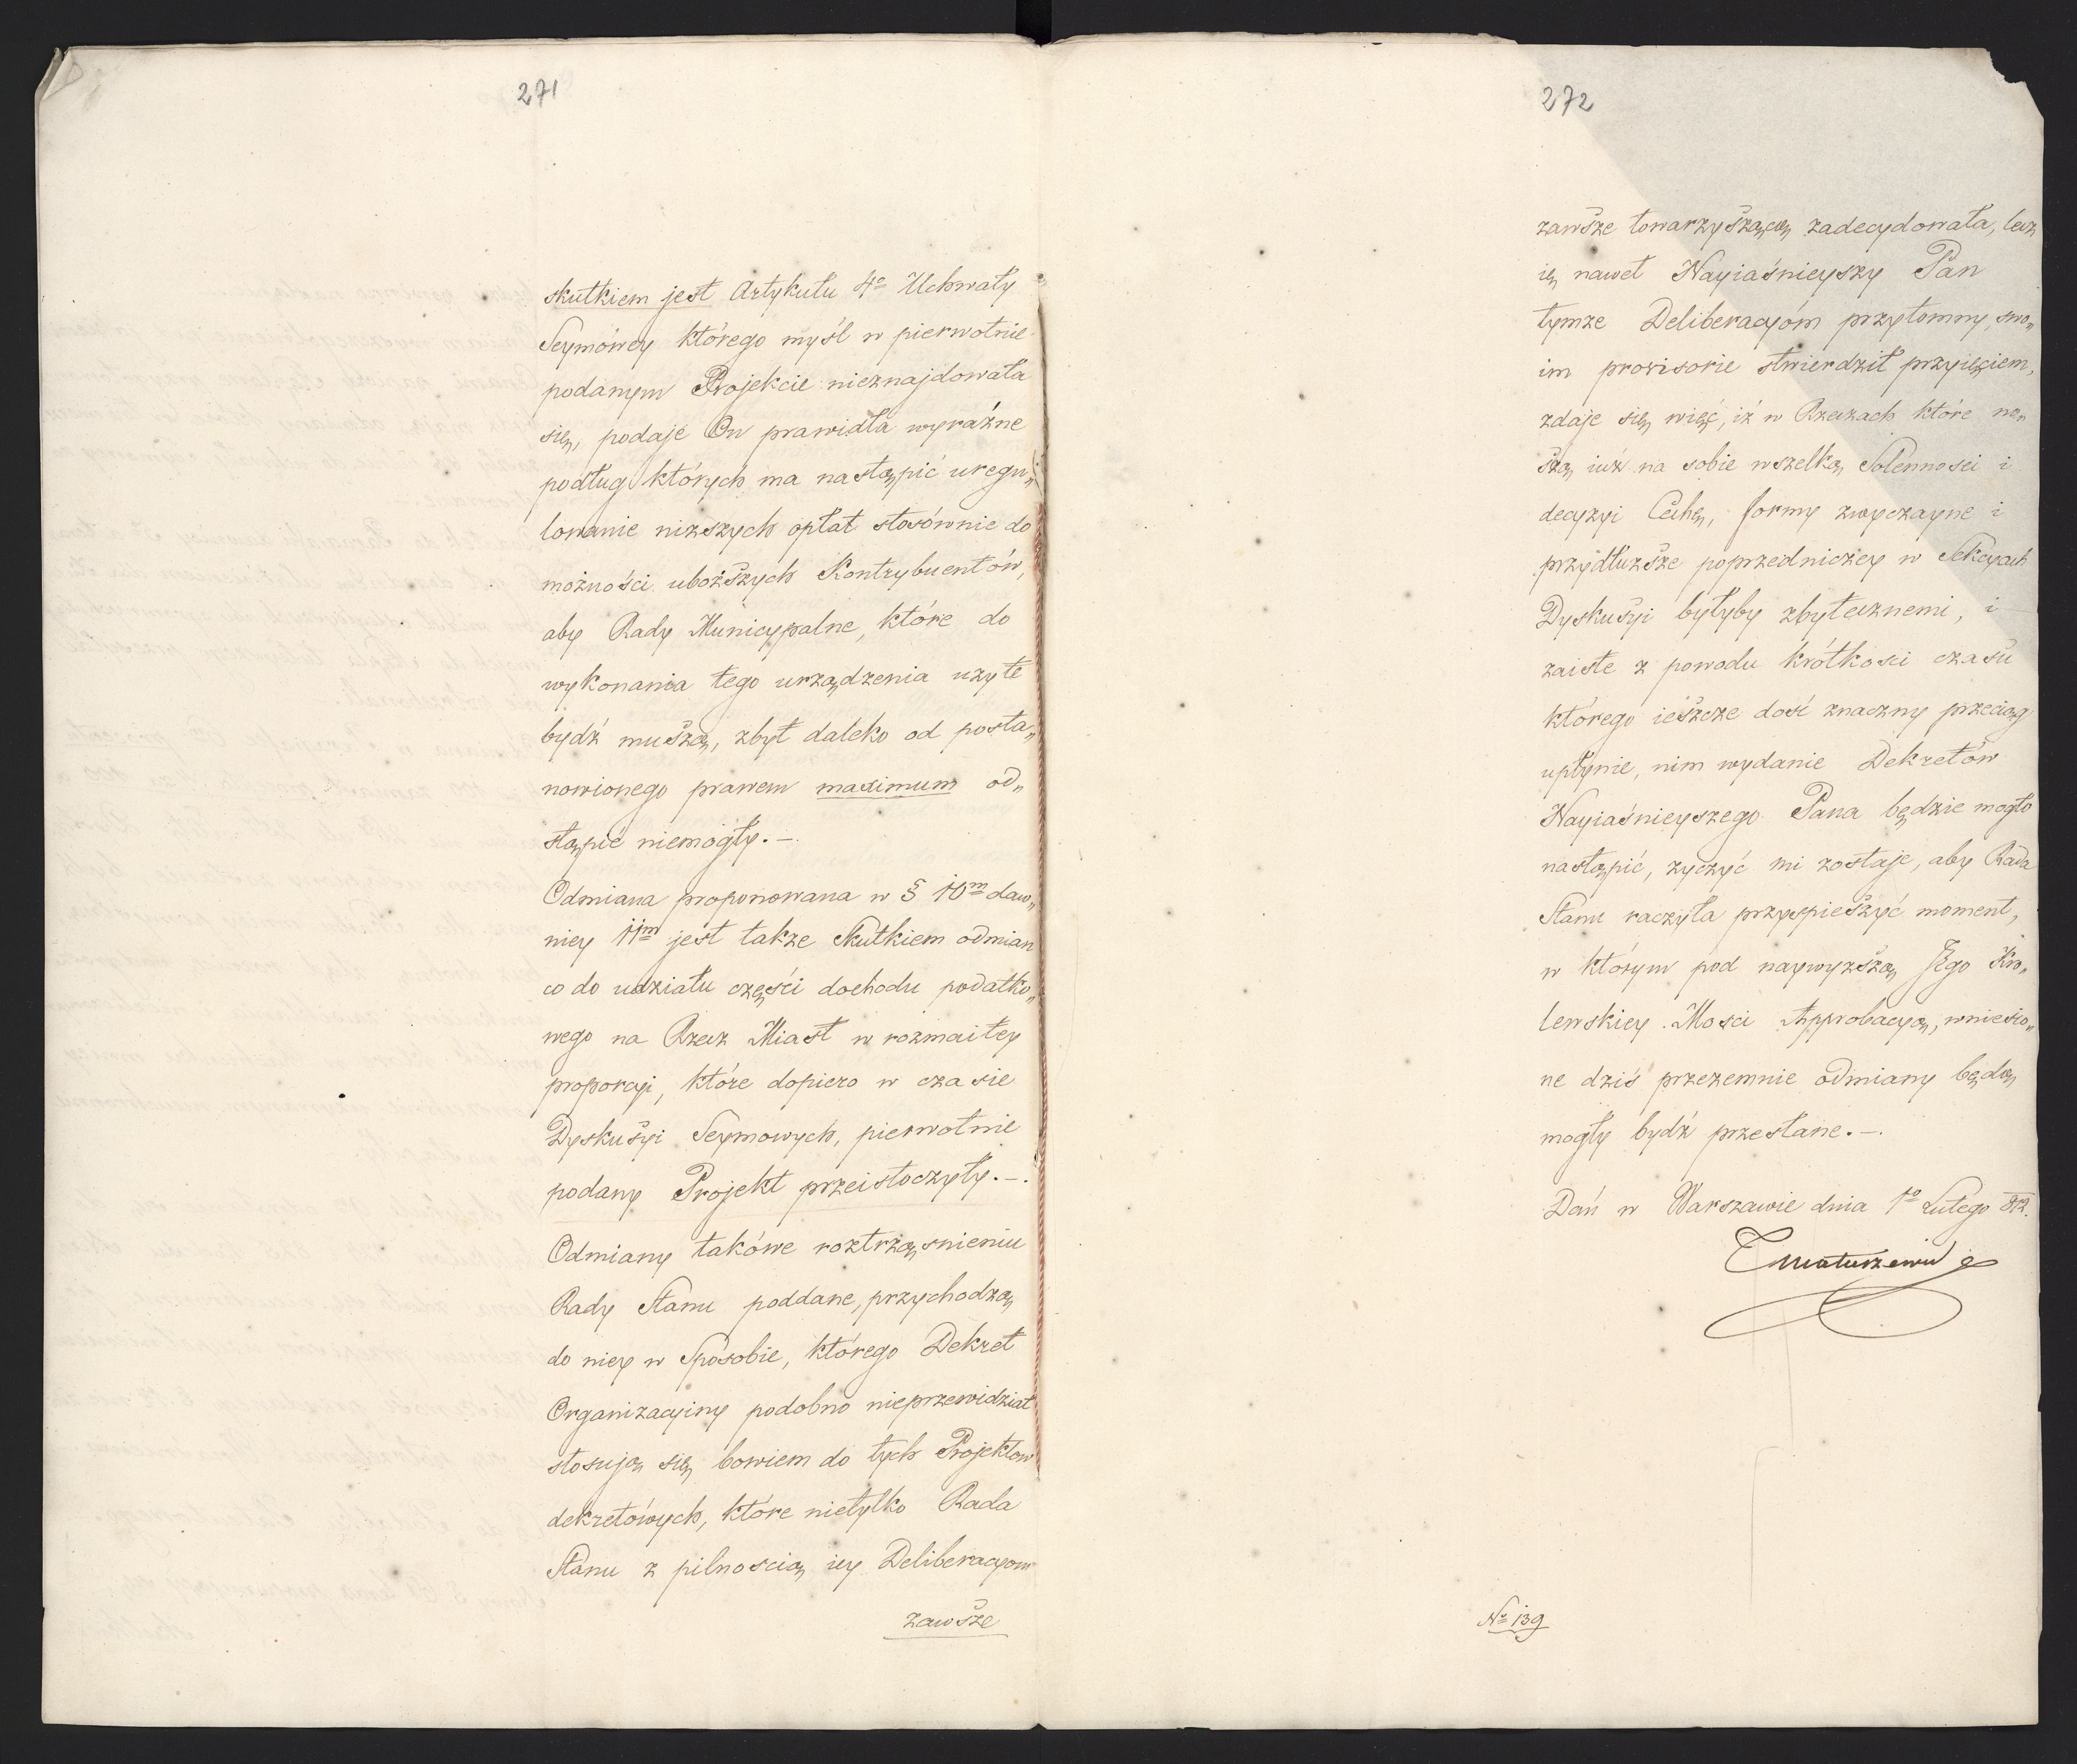 271
skutkiem jest Artykułu 4º Uchwały
Seymówey którego myśl w pierwotnie
podanym Projekcie nieznajdowała
się, podaje On prawidła wyraźne
podług których ma nastąpić uregu„
lowanie niższych opłat stosównie do
możności uboższych Kontrybuentów,
aby Rady Municypalne, które do
wykonania tego urządzenia użyte
bydź muszą, zbyt daleko od posta„
nowionego prawem maximum od„
stąpić niemogły.—
Odmiana proponowana w § 10m daw„
niey 11m jest także Skutkiem odmian
co do udziału części dochodu podatko„
wego na Rzecz Miast w rozmaitey
proporcyi, które dopiero w czasie
Dyskusyi Seymowych, pierwotnie
podany Projekt przeistoczyły.—.
Odmiany takówe roztrząśnieniu
Rady Stanu poddane, przychodzą
do niey w Sposobie, którego Dekret
Organizacyiny podobno nieprzewidział
stosują się bowiem do tych Projektow
dekretówych, które nietylko Rada
Stanu z pilnością iey Deliberacyom
zawsze
272
zawsze towarzyszącą zadecydowała, lecz
ię nawet Nayiaśnieyszy Pan
tymże Deliberacyóm przytomny, swo„
im provisorie stwierdził przyięciem,
zdaje się więć, iż w Rzeczach które no„
szą iuż na sobie wszelką Solennosci i
decyzyi Cechę, formy zwyczayne i
przydłuższe poprzedniczey w Sekcyach
Dyskusyi byłyby zbytecznemi, i
zaiste z powodu krótkosci czasu
którego ieszcze dosć znaczny przeciąg
upłynie, nim wydanie Dekretów
Nayiaśnieyszego Pana będzie mogło
nastąpić, życzyć mi zostaje, aby Rada
Stanu raczyła przyspieszyć moment,
w którym pod naywyższą Jego Kró„
lewskiey Mosci Approbacyą, wniesio„
ne dziś przezemnie odmiany będą
mogły bydź przesłane.—.
Dań w Warszawie dnia 1º Lutego 812.
T Matuszewic
Nº 139